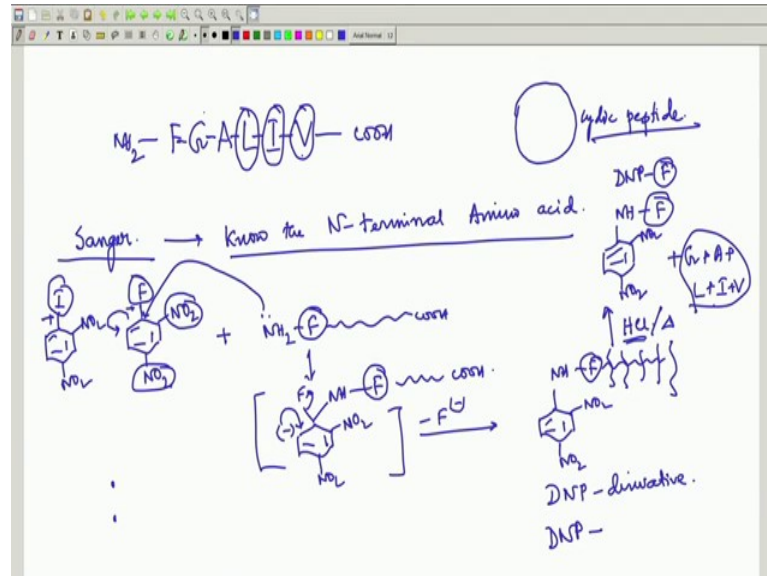 Arial Normal 12
NH2 — F-G-A-L-I-V — COOH
cyclic peptide.
Sanger. → Know the N-terminal Amino acid.
DNP-F
NH-F
NO2
NO2
+ G+A+
L+I+V
HCl/Δ
I
NO2
NO2
F
NO2
NO2
+
NH2-F COOH
F NH-F COOH.
(-)
NO2
NO2
-F(-)
NH-F
NO2
NO2
DNP-dirivative.
DNP-